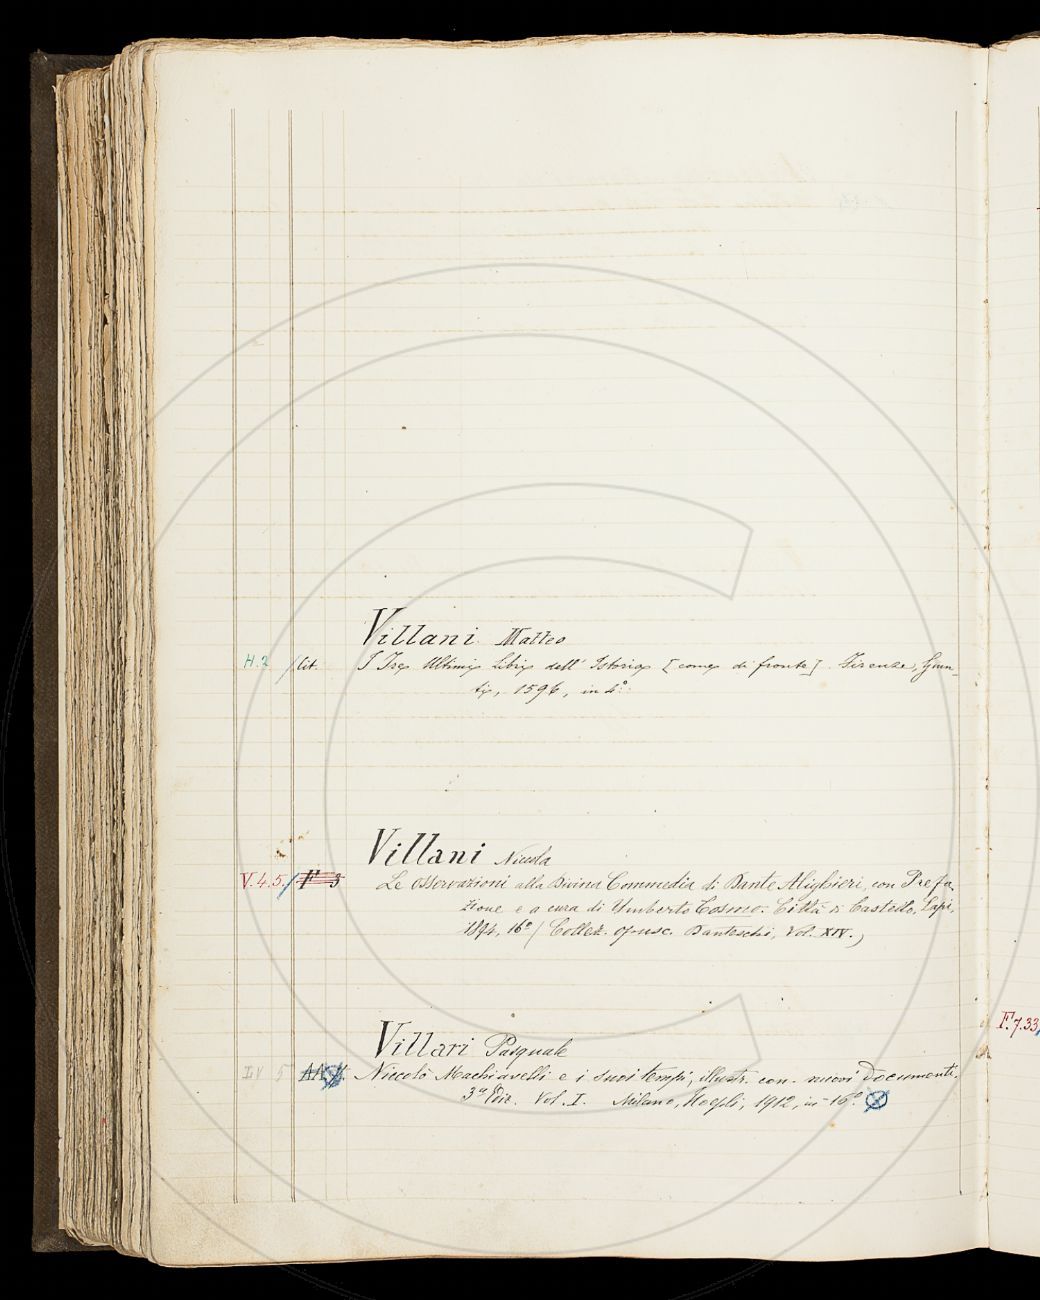 Villani Matteo
H. 2 / Cit. I Tre Ultimi Libri dell' Istoria [come di fronte]. Firenze, Giun-
ti, 1596, in 4º.
Villani Nicola
V. 4.5. / F 3 Le Osservazioni alla Divina Commedia di Dante Alighieri, con Prefa-
zione e a cura di Umberto Cosmo. Città di Castello, Lapi,
1894, 16º (Collez. opusc. Danteschi, Vol. XIV.)
Villari Pasquale
IV 5 Niccolò Machiavelli e i suoi tempi, illustr. con nuovi documenti.
3ª Ediz. Vol. I. Milano, Hoepli, 1912, in-16º.
F. 7. 33,